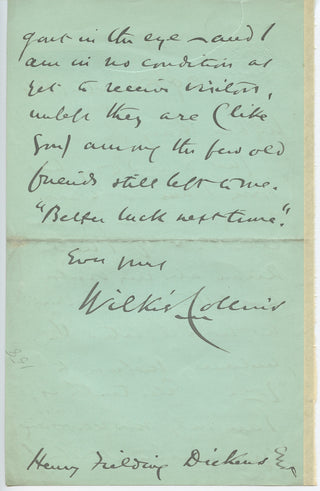 gout in the eye – and I
am in no condition as
yet to receive visitors,
unless they are (like
you) among the few old
friends still left to me.
"Better luck next time".
Ever yours
Wilkie Collins
Henry Fielding Dickens Esq